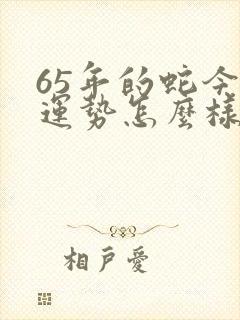 65年的蛇今
運勢怎麼樣
相戶愛